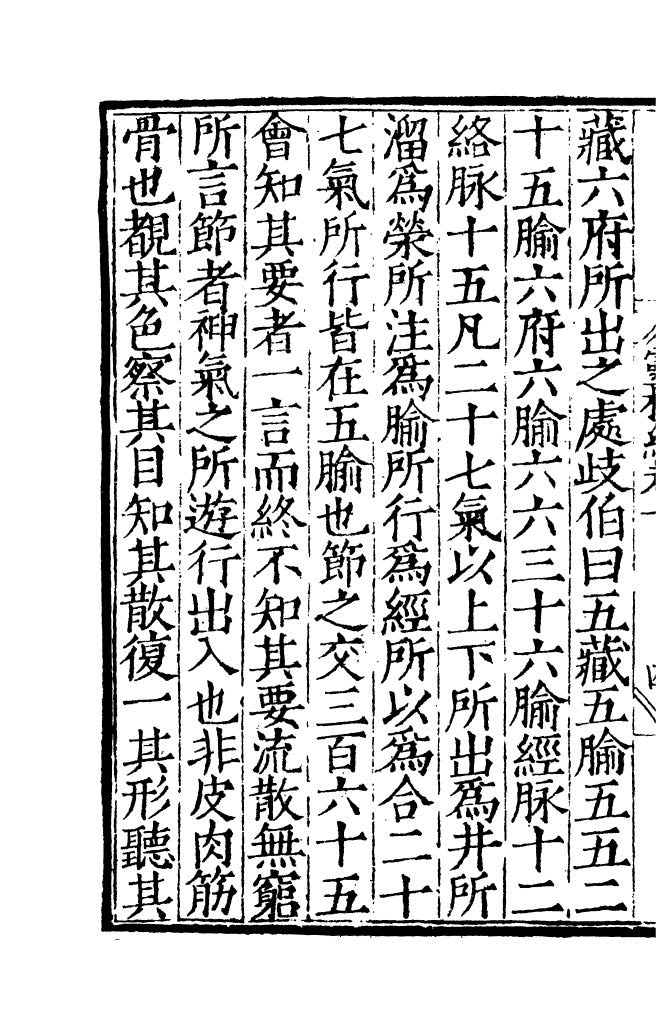 藏六府所出之處歧伯曰五藏五腧五五二
十五腧六府六腧六六三十六腧經脉十二
絡脉十五凡二十七氣以上下所出爲井所
溜爲榮所注爲腧所行爲經所以爲合二十
七氣所行皆在五腧也節之交三百六十五
會知其要者一言而終不知其要流散無窮
所言節者神氣之所遊行出入也非皮肉筋
骨也覩其色察其目知其散復一其形聽其